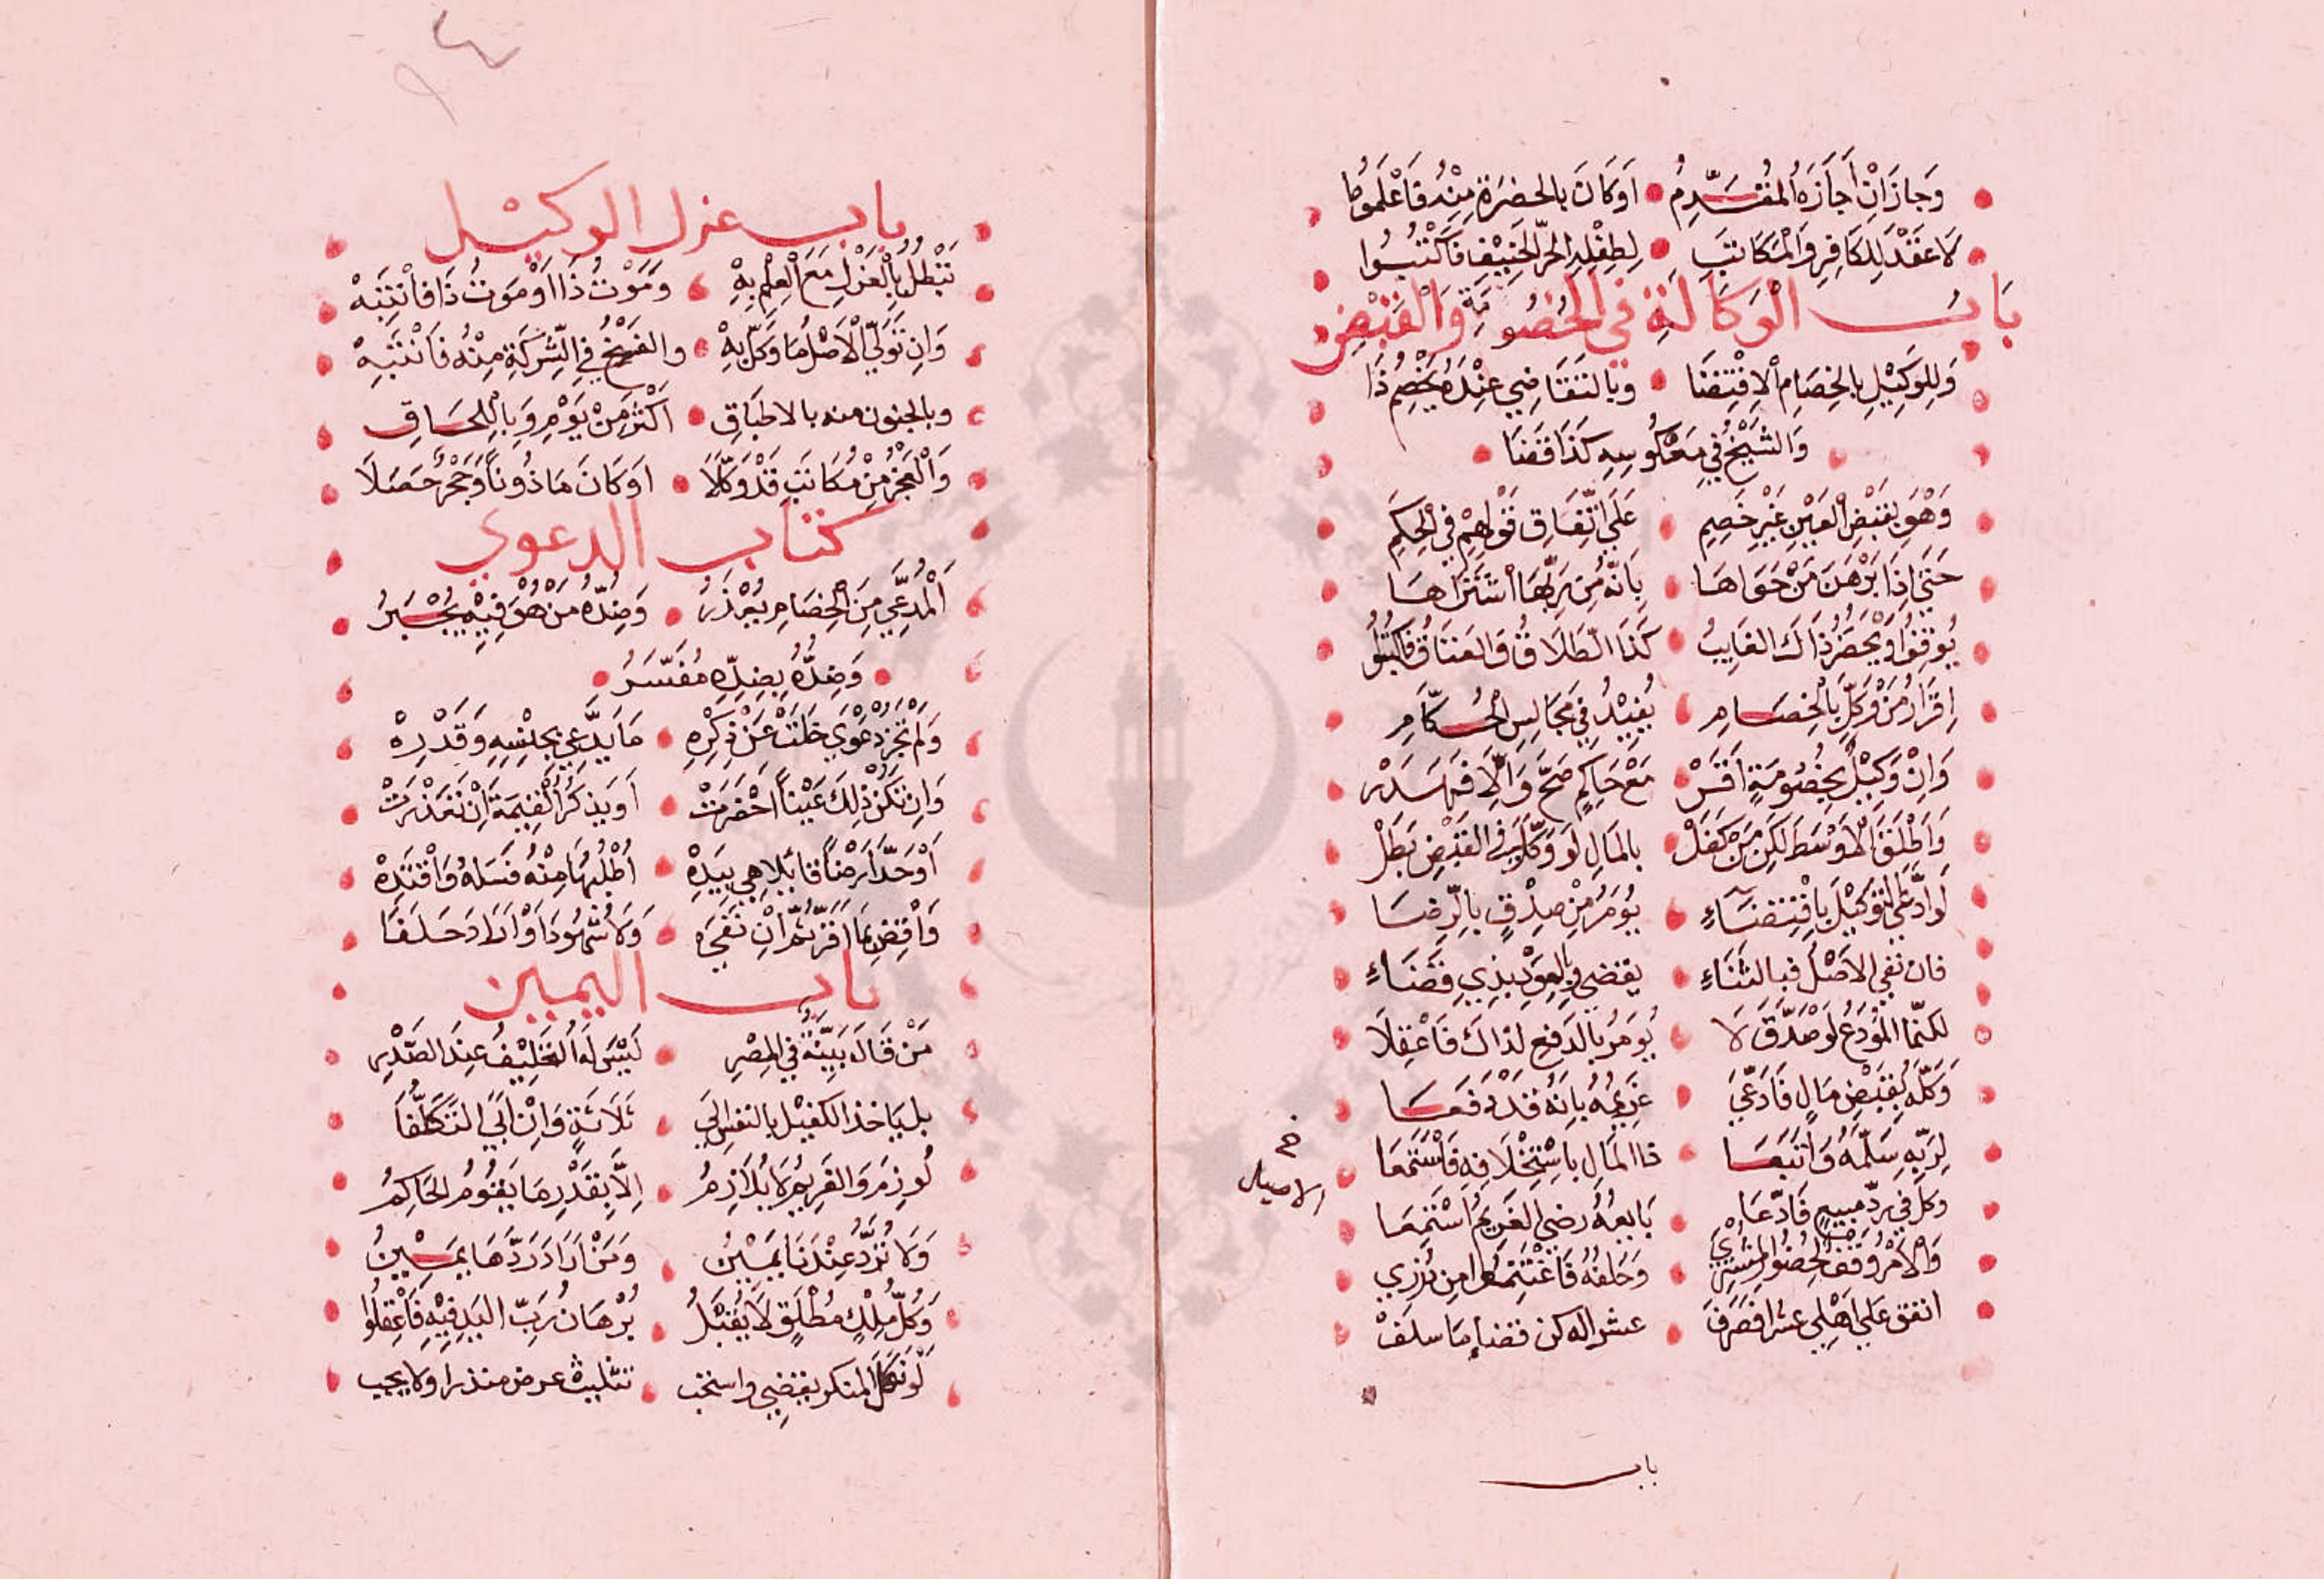 وَجازَ انْ أَجازَهُ المُقَدِّمُ اَوكَانَ بالحضرَة مِنْهُ فَاعْلَموُا
لَا عَقْدَ لِلكَافِرِ وَالْمكَاتَبِ لِطِفْلِهِ الحرّ الحَنِيْفِ فَاكْتُبُوا
بَابُ الْوَكَالَةِ فِي الخُصُومَةِ وَالْقَبْضِ
وَلِلوَكِيْلِ بالخِصَامِ الاِقْتِضَا وبالتَقَاضِي عِنْدَهُ يُخْصِمُ ذَا
وَالشَيْخُ فِي مَعْكُوسِهِ كَذَا قَضَا
وَهْوَ بِقَبْضِ العَيْنِ غَيْرِ خَصِيمِ عَلَي اتِّفَاقِ قَوْلِهِمْ في الحِكَمِ
حَتيَّ اِذَا بَرْهَنَ مَنْ حَوَاهَا بِاَنّهُ مِن رَبِّهَا اشْتَرَاهَا
يُوقِفُوا وَيْحضُرُ ذَاكَ الغَايبُ كَذَا الطَلَاقُ وَالعَتَاقُ
اِقرَارُ مَنْ وُكِّلَ بالْخِصَامِ يُفِيْدُ فِي مَجَالِسِ الحُكّامِ
وَاِنْ وَكِيْلٌ بِخُصُومَةٍ اَقَرّْ مَعْ حَاكِمٍ صَحَّ وَالِّا فَهدَرْ
وَاَطْلَقَ الأَوْسَطَ لَكِن مَنْ كَفَلْ بالمَالِ لَو وَكِّلَ في القَبْضِ بَطَلْ
لَو ادَّعَي التَوْكِيْلَ بِاقْتِضَآءِ يُومَرُ مِنْ صِدْقٍ بالرِّضَا
فان نَفي الاَصْلُ فبالثنَاءِ يقضى وبالعَوْدِ بِذي قَضَاءِ
لكنّمَا المُوْدَعُ لَو صَدَّقَ لَا يُومَرُ بالدَفِعِ لذاكَ فَاعْقِلَا
وَكَّلَهُ بِقَبْضِ مَالٍ فَادّعَيَ غَرِيمُهُ بِاَنّهُ قَدْ دَفَعَا
لِرَبّهِ سَلّمَهُ وَاَتبَعَا ذا المَالِ بِاسْتِحْلَافِهِ فَاسْتَمَعَا
وكل في رَدِّ مَبِيعٍ فَادّعَا بَايعُهُ رضي الغَرِيمُ اسْتَمِعَا
وَالاَمْرُ وَقْفٌ لِحُضُوْرِ المشْتَرِي وَحَلفُهُ فَاغْتَنِمُوا مِن دُرَري
انفق عَلي اَهْلِي عشرا فصَرَفَ عشرا له كن قضاء مَا سَلَفْ
الاصيل
باب
باب عزل الوكيْل
تَبْطُلُ بِالْعَزْلِ مَعَ الْعِلْمِ بِهِ وَمَوْتُ ذَا اَوْ مَوتُ ذَا فَانْتَبِهْ
وَاِن تَوَلّي الْاَصْلُ مَا وَكّلَ بِهْ والفَسْخُ في الشِّرْكَةِ مِنْهُ فَانْتَبِهْ
وبالجنون منه بالاطبَاقِ اكْثَرَ مِنْ يَوْمٍ وَبِاللحَاقِ
وَالْعَجْزُ مِنْ مُكَاتَبٍ قَدْ وَكّلَا اَوكَانَ مَاذُوناً وَحَجْرٌ حَصَلَا
كتاب الدعوي
اَلْمُدَّعِي مِنَ الْخِصَامِ يُعْذَرُ وَضِدّهُ مَنْ هُوَ فِيْهِ يُجْبَرُ
وَضِدُّهُ بِضِدِّهِ مُفَسَّرُ
وَلمْ تَجُزْ دَعْوَي خَلَتْ عَنْ ذِكْرِهِ مَا يَدَّعِي بِجِنْسِهِ وَقَدْرِهْ
وَاِن تَكُنْ ذلِكَ عَيْناً احْضَرَتْ اَو يَذكُرُ الْقِيمَةَ اِنْ تَعَذَّرَتْ
اَوْ حَدَّ اَرْضاً قائلا هِي بِيَدِهْ اَطْلُبُهَا مِنْهُ فَسَلهُ وَاقْتَدِهْ
وَاقِضِ بمَا اَقَرّ ثُمّ اِنْ نَفَي وَلَا شُهُودَ اَوْ اَرَادَ حَلَفَا
بابُ اليمين
مَنْ قَالَ بَيِّنَةٌ في المِصْرِ لَيْسَ لَهُ التَحْلِيْفُ عِنْدَ الصَّدْرِ
بل يَاخذ الكفيْل بالنفس الي ثَلَاثَةٍ وَاِنْ اَبَي التَكَلّفَا
لُوزِمَ وَالغَرِيبُ لَا يُلَازِمُ اِلَّا بِقَدْرِ مَا يَقُومُ الحَاكِمُ
وَلَا تُرَدُّ عِنْدَنَا يَمِيْنُ وَمَنْ اَرَادَ رَدَّهَا يَمِيْنُ
وَكُلّ مِلْكٍ مُطْلَقٍ لَا يُقْبَلُ بُرْهَانُ رَبِّ اليَدِ فِيْهِ فَاعْقِلُوا
لَو نَكَلَ المنكر يقضِي واستحب تثليث عرض منذرا ولا يجب